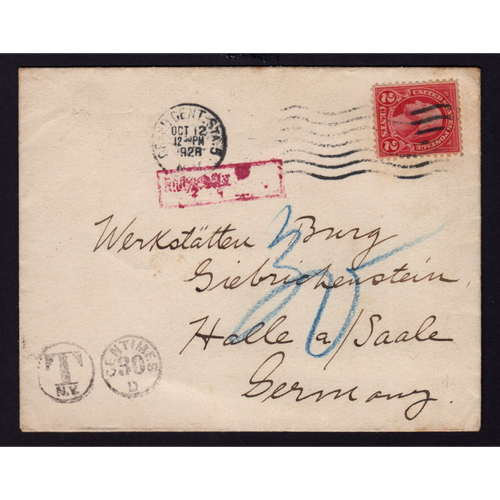 GR. CENT. STA. 5
OCT 12
12-PM
1928
UNITED STATES POSTAGE
2 CENTS 2
Werkstätten Burg
Giebichenstein,
Halle a/Saale
Germany.
30
T
N.Y.
CENTIMES
30
D